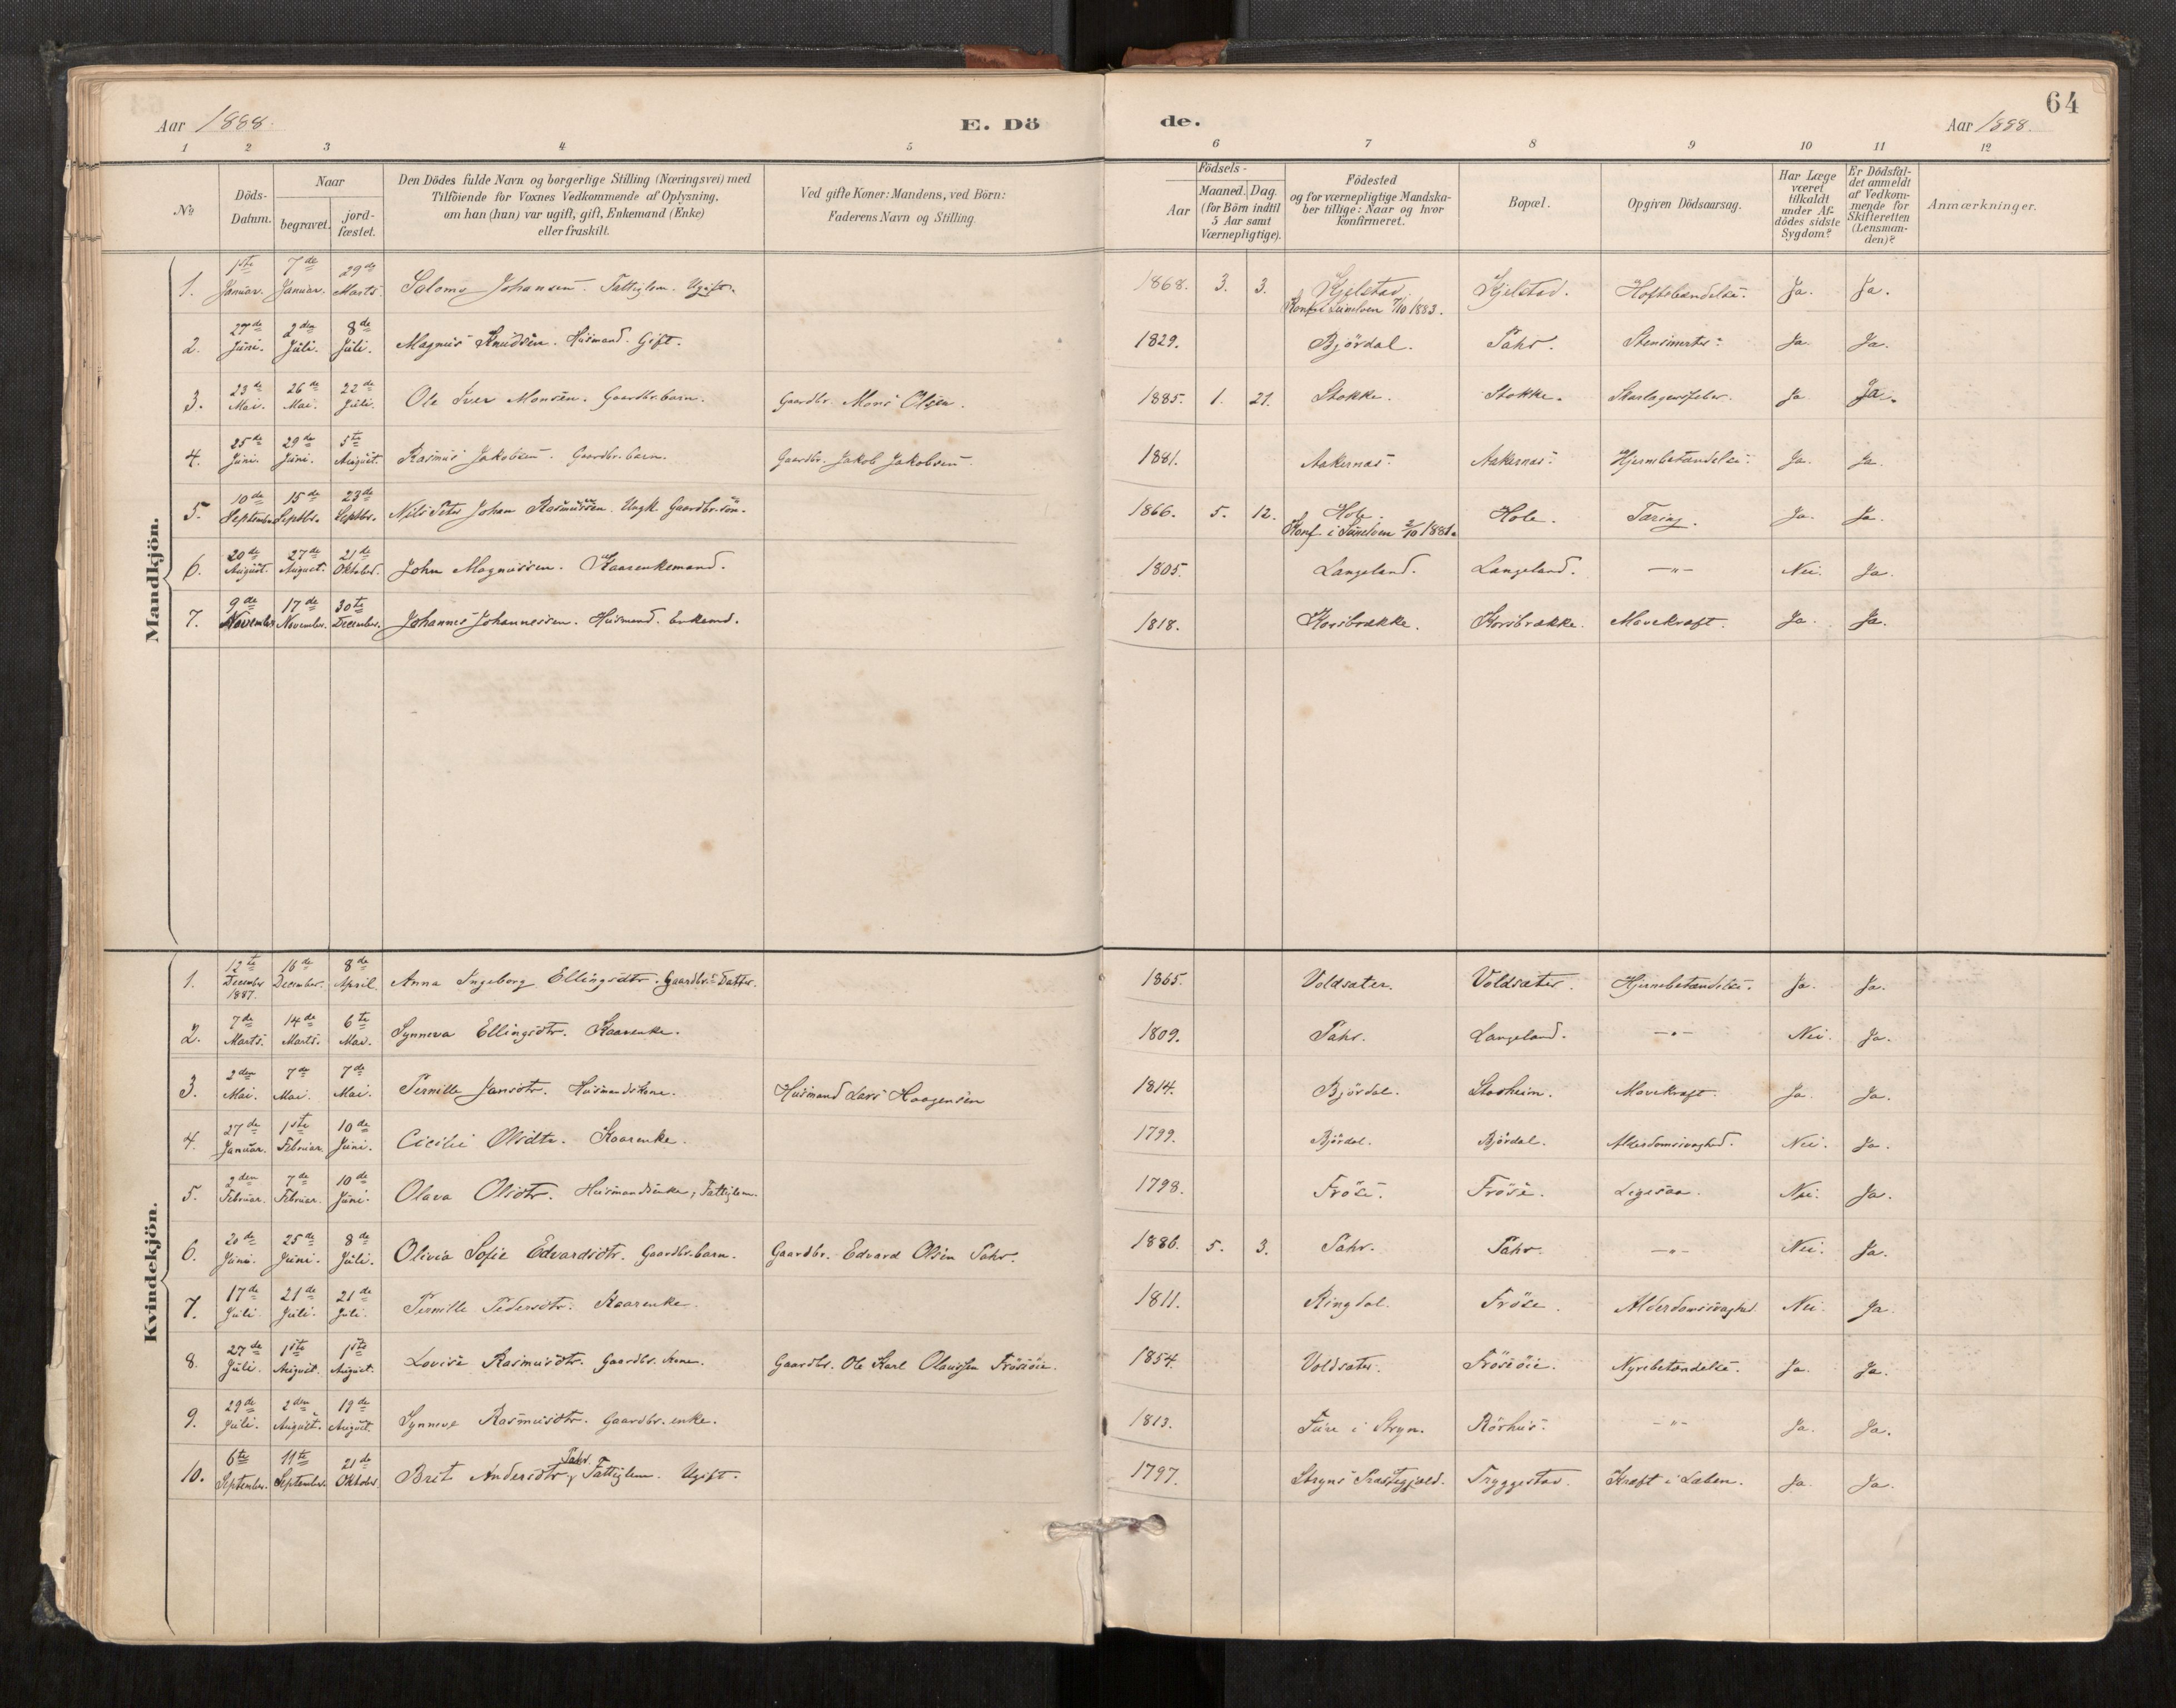 64
Aar 1888. E. Dö de. Aar 1888.
1 2 3 4 5 6 7 8 9 10 11 12
No
Döds-Datum.
Naar
begravet.
jord-fæstet.
Den Dödes fulde Navn og borgerlige Stilling (Næringsvei) med
Tilföiende for Voxnes Vedkommende af Oplysning,
om han (hun) var ugift, gift, Enkemand (Enke)
eller fraskilt.
Ved gifte Koner: Mandens, ved Börn:
Faderens Navn og Stilling.
Födsels-
Aar
Maaned. Dag.
(for Börn indtil
5 Aar samt
Værnepligtige).
Födested
og for værnepligtige Mandska-
ber tillige: Naar og hvor
konfirmeret.
Bopæl.
Opgiven Dödsaarsag.
Har Læge
været
tilkaldt
under Af-
dödes sidste
Sygdom?
Er Dödsfal-
det anmeldt
af Vedkom-
mende for
Skifteretten
(Lensman-
den)?
Anmærkninger.
Mandkjön.
1. 1ste Januar. 7de Januar. 29de Marts. Salomo Johansen. Fattiglem. Ugift. 1868. 3. 3. Kjelstad. Kjelstad. Hoftebændelse. Ja. Ja.
Konf. i Sunelven 7/10 1883.
2. 27de Juni. 2den Juli. 8de Juli. Magnus Knudsen. Husmand. Gift. 1829. Björdal. Tahr. Stensmerter. Ja. Ja.
3. 23de Mai. 26de Mai. 22de Juli. Ole Iver Monsen. Gaardbr. barn. Gaardbr. Mons Olsen. 1885. 1. 21. Stokke. Stokke. Skarlagensfeber. Ja. Ja.
4. 25de Juni. 29de Juni. 5te August. Rasmus Jakobsen. Gaardbr. barn. Gaardbr. Jakob Jakobsen. 1881. Aakernæs. Aakernæs. Hjernebetændelse. Ja. Ja.
5. 10de Septembr. 15de Septbr. 23de Septbr. Nils Peter Johan Rasmussen. Ungk. Gaardbr. sön. 1866. 5. 12. Hole. Hole. Tæring. Ja. Ja.
Konf. i Sunelven 2/10 1881.
6. 20de August. 27de August. 21de Oktober. John Magnussen. Kaarenkemand. 1805. Langeland. Langeland. —"— Nei. Ja.
7. 9de November. 17de November. 30te December. Johannes Johannessen. Husmand. Enkemd. 1818. Korsbrække. Korsbrække. Mavekræft. Ja. Ja.
Kvindekjön.
1. 12te December 1887. 16de December. 8de April. Anna Ingeborg Ellingsdtr. Gaardbr. Datter. 1865. Voldsæter. Voldsæter. Hjernebetændelse. Ja. Ja.
2. 7de Marts. 14de Marts. 6te Mai. Synneva Ellingsdtr. Kaarenke. 1809. Tahr. Langeland. —"— Nei. Ja.
3. 2den Mai. 7de Mai. 7de Mai. Pernille Jansdtr. Husmandskone. Husmand Lars Haagensen 1814. Björdal. Storheim. Mavekræft. Ja. Ja.
4. 27de Januar. 1ste Februar. 10de Juni. Cicilie Olsdtr. Kaarenke. 1799. Björdal. Björdal. Alderdomssvaghed. Nei. Ja.
5. 2den Februar. 7de Februar. 10de Juni. Olava Olsdtr. Husmandsenke, Fattiglem. 1798. Fröse. Fröse. Ligesaa. Nei. Ja.
6. 20de Juni. 25de Juni. 8de Juli. Olivia Sofie Edvardsdtr. Gaardbr. barn. Gaardbr. Edvard Olsen Tahr. 1886. 5. 3. Tahr. Tahr. —"— Nei. Ja.
7. 17de Juli. 21de Juli. 21de Juli. Pernille Pedersdtr. Kaarenke. 1811. Ringdal. Fröse. Alderdomssvaghed. Nei. Ja.
8. 27de Juli. 1ste August. 1ste August. Lovise Rasmusdtr. Gaardbr. kone. Gaardbr. Ole Karl Olaussen Frösöie. 1854. Voldsæter. Fröseöie. Nyrebetændelse. Ja. Ja.
9. 29de Juli. 2den August. 19de August. Synneve Rasmusdtr. Gaardbr. enke. 1813. Fure i Stryn. Rörhus. —"— Ja. Ja.
10. 6te September. 11te September. 21de Oktober. Brit Andersdtr. Tahr, Fattiglem. Ugift. 1797. Stryns Præstegjeld. Tryggestad. Kræft i Læben. Ja. Ja.